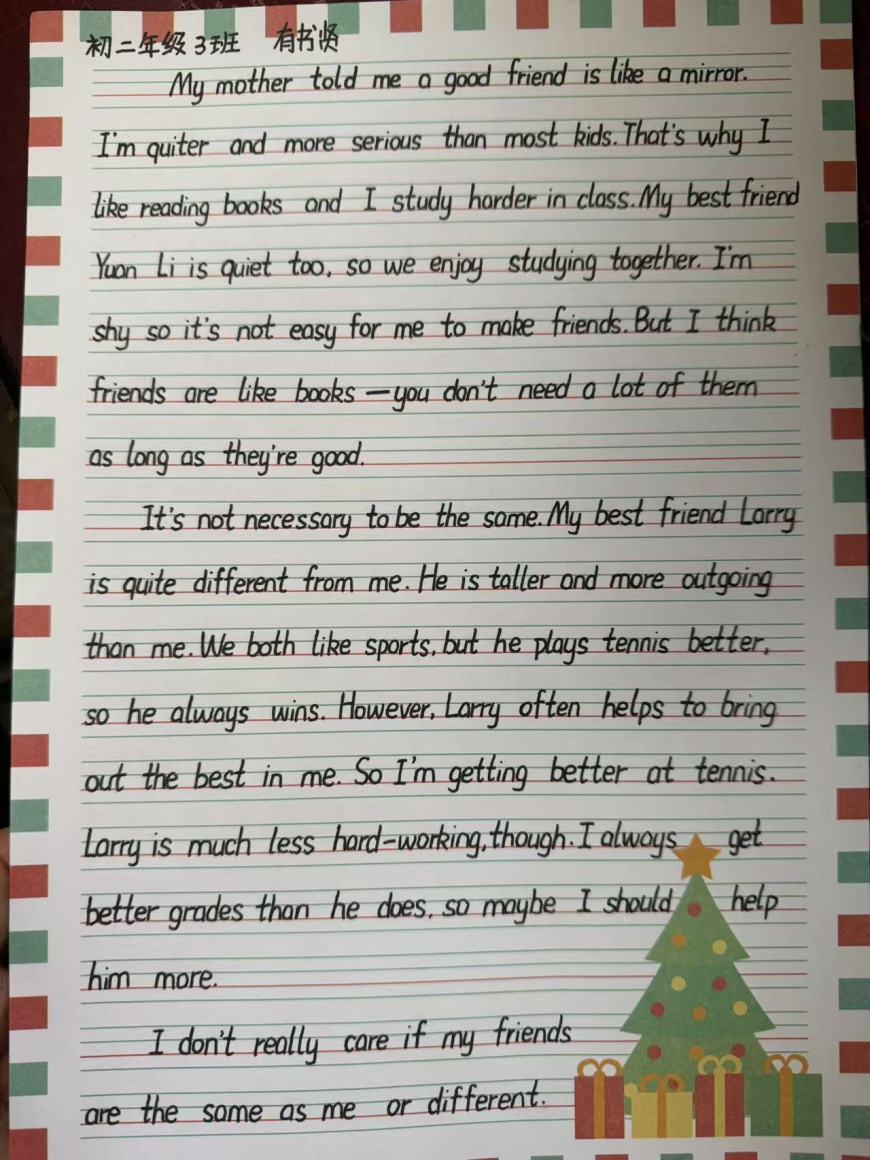 初二年级3班 有书贤
My mother told me a good friend is like a mirror.
I'm quiter and more serious than most kids. That's why I
like reading books and I study harder in class. My best friend
Yuan Li is quiet too, so we enjoy studying together. I'm
shy so it's not easy for me to make friends. But I think
friends are like books — you don't need a lot of them
as long as they're good.
It's not necessary to be the same. My best friend Larry
is quite different from me. He is taller and more outgoing
than me. We both like sports, but he plays tennis better,
so he always wins. However, Larry often helps to bring
out the best in me. So I'm getting better at tennis.
Larry is much less hard-working, though. I always get
better grades than he does, so maybe I should help
him more.
I don't really care if my friends
are the same as me or different.